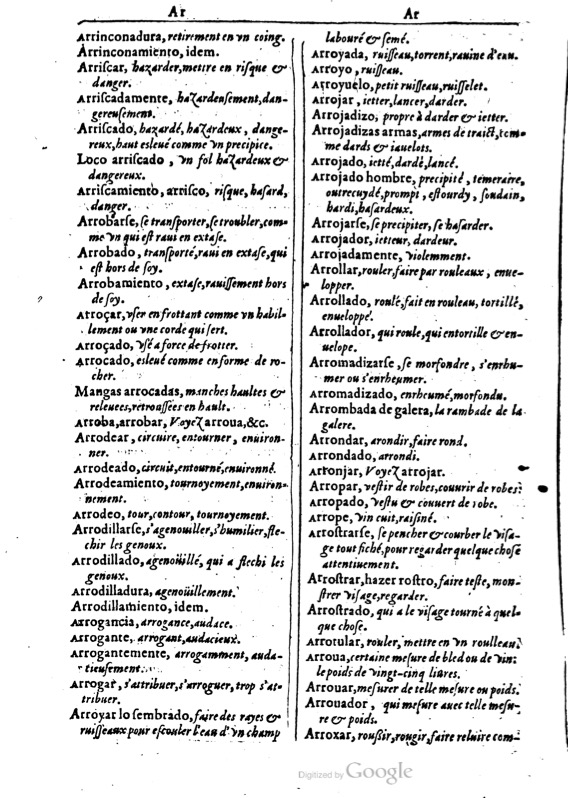 Ar
Arrinconadura, retirement en vn coing.
Arrinconamiento, idem.
Arriſcar, hazarder, mettre en riſque &
danger.
Arriſcadamente, hazardeuſement, dan-
gereuſement.
Arriſcado, hazardé, hazardeux, dange-
reux, haut eſleué comme vn precipice.
Loco arriſcado, vn fol hazardeux &
dangereux.
Arriſcamiento, arriſco, riſque, haſard,
danger.
Arrobarſe, ſe tranſporter, ſe troubler, com-
me vn qui eſt raui en extaſe.
Arrobado, tranſporté, raui en extaſe, qui
eſt hors de ſoy.
Arrobamiento, extaſe, rauiſſement hors
de ſoy.
Arroçar, vſer en frottant comme vn habil-
lement ou vne corde qui ſert.
Arroçado, vſé a force de frotter.
Arrocado, esleué comme en forme de ro-
cher.
Mangas arrocadas, manches haultes &
releuees, retrouſſées en hault.
Arroba, arrobar, Voyez arroua, &c.
Arrodear, circuire, entourner, enuiron-
ner.
Arrodeado, circuit, entourné, enuironné.
Arrodeamiento, tournoyement, enuiron-
nement.
Arrodeo, tour, contour, tournoyement.
Arrodillarſe, s'agenouiller, s'humilier, fle-
chir les genoux.
Arrodillado, agenoüillé, qui a flechi les
genoux.
Arrodilladura, agenoüillement.
Arrodillamiento, idem.
Arrogancia, arrogance, audace.
Arrogante, arrogant, audacieux.
Arrogantemente, arrogamment, auda-
tieuſement.
Arrogar, s'attribuer, s'arroguer, trop s'at-
tribuer.
Arroyar lo ſembrado, faire des rayes &
ruiſſeaux pour eſcouler l'eau d'vn champ
Ar
labouré & ſemé.
Arroyada, ruiſſeau, torrent, rauine d'eau.
Arroyo, ruiſſeau.
Arroyuelo, petit ruiſſeau, ruiſſelet.
Arrojar, ietter, lancer, darder.
Arrojadizo, propre à darder & ietter.
Arrojadizas armas, armes de traict, com-
me dards & iauelots.
Arrojado, ietté, dardé, lancé.
Arrojado hombre, precipité, temeraire,
outrecuydé, prompt, eſtourdy, ſoudain,
hardi, haſardeux.
Arrojarſe, ſe precipiter, ſe haſarder.
Arrojador, ietteur, dardeur.
Arrojadamente, violemment.
Arrollar, rouler, faire par rouleaux, enue-
lopper.
Arrollado, roulé, fait en rouleau, tortillé,
enueloppé.
Arrollador, qui roule, qui entortille & en-
uelope.
Arromadizarſe, ſe morfondre, s'enrhu-
mer ou s'enrheumer.
Arromadizado, enrheumé, morfondu.
Arrombada de galera, la rambade de la
galere.
Arrondar, arondir, faire rond.
Arrondado, arrondi.
Arronjar, Voyez arrojar.
Arropar, veſtir de robes, couurir de robes.
Arropado, veſtu & couuert de robe.
Arrope, vin cuit, raiſiné.
Arroſtrarſe, ſe pencher & courber le viſa-
ge tout fiché, pour regarder quelque choſe
attentiuement.
Arroſtrar, hazer roſtro, faire teſte, mon-
ſtrer viſage, regarder.
Arroſtrado, qui a le viſage tourné à quel-
que choſe.
Arrotular, rouler, mettre en vn roulleau.
Arroua, certaine meſure de bled ou de vin:
le poids de vingt-cinq liures.
Arrouar, meſurer de telle meſure ou poids.
Arrouador, qui meſure auec telle meſu-
re & poids.
Arroxar, rouſſir, rougir, faire reluire com-
Digitized by Google